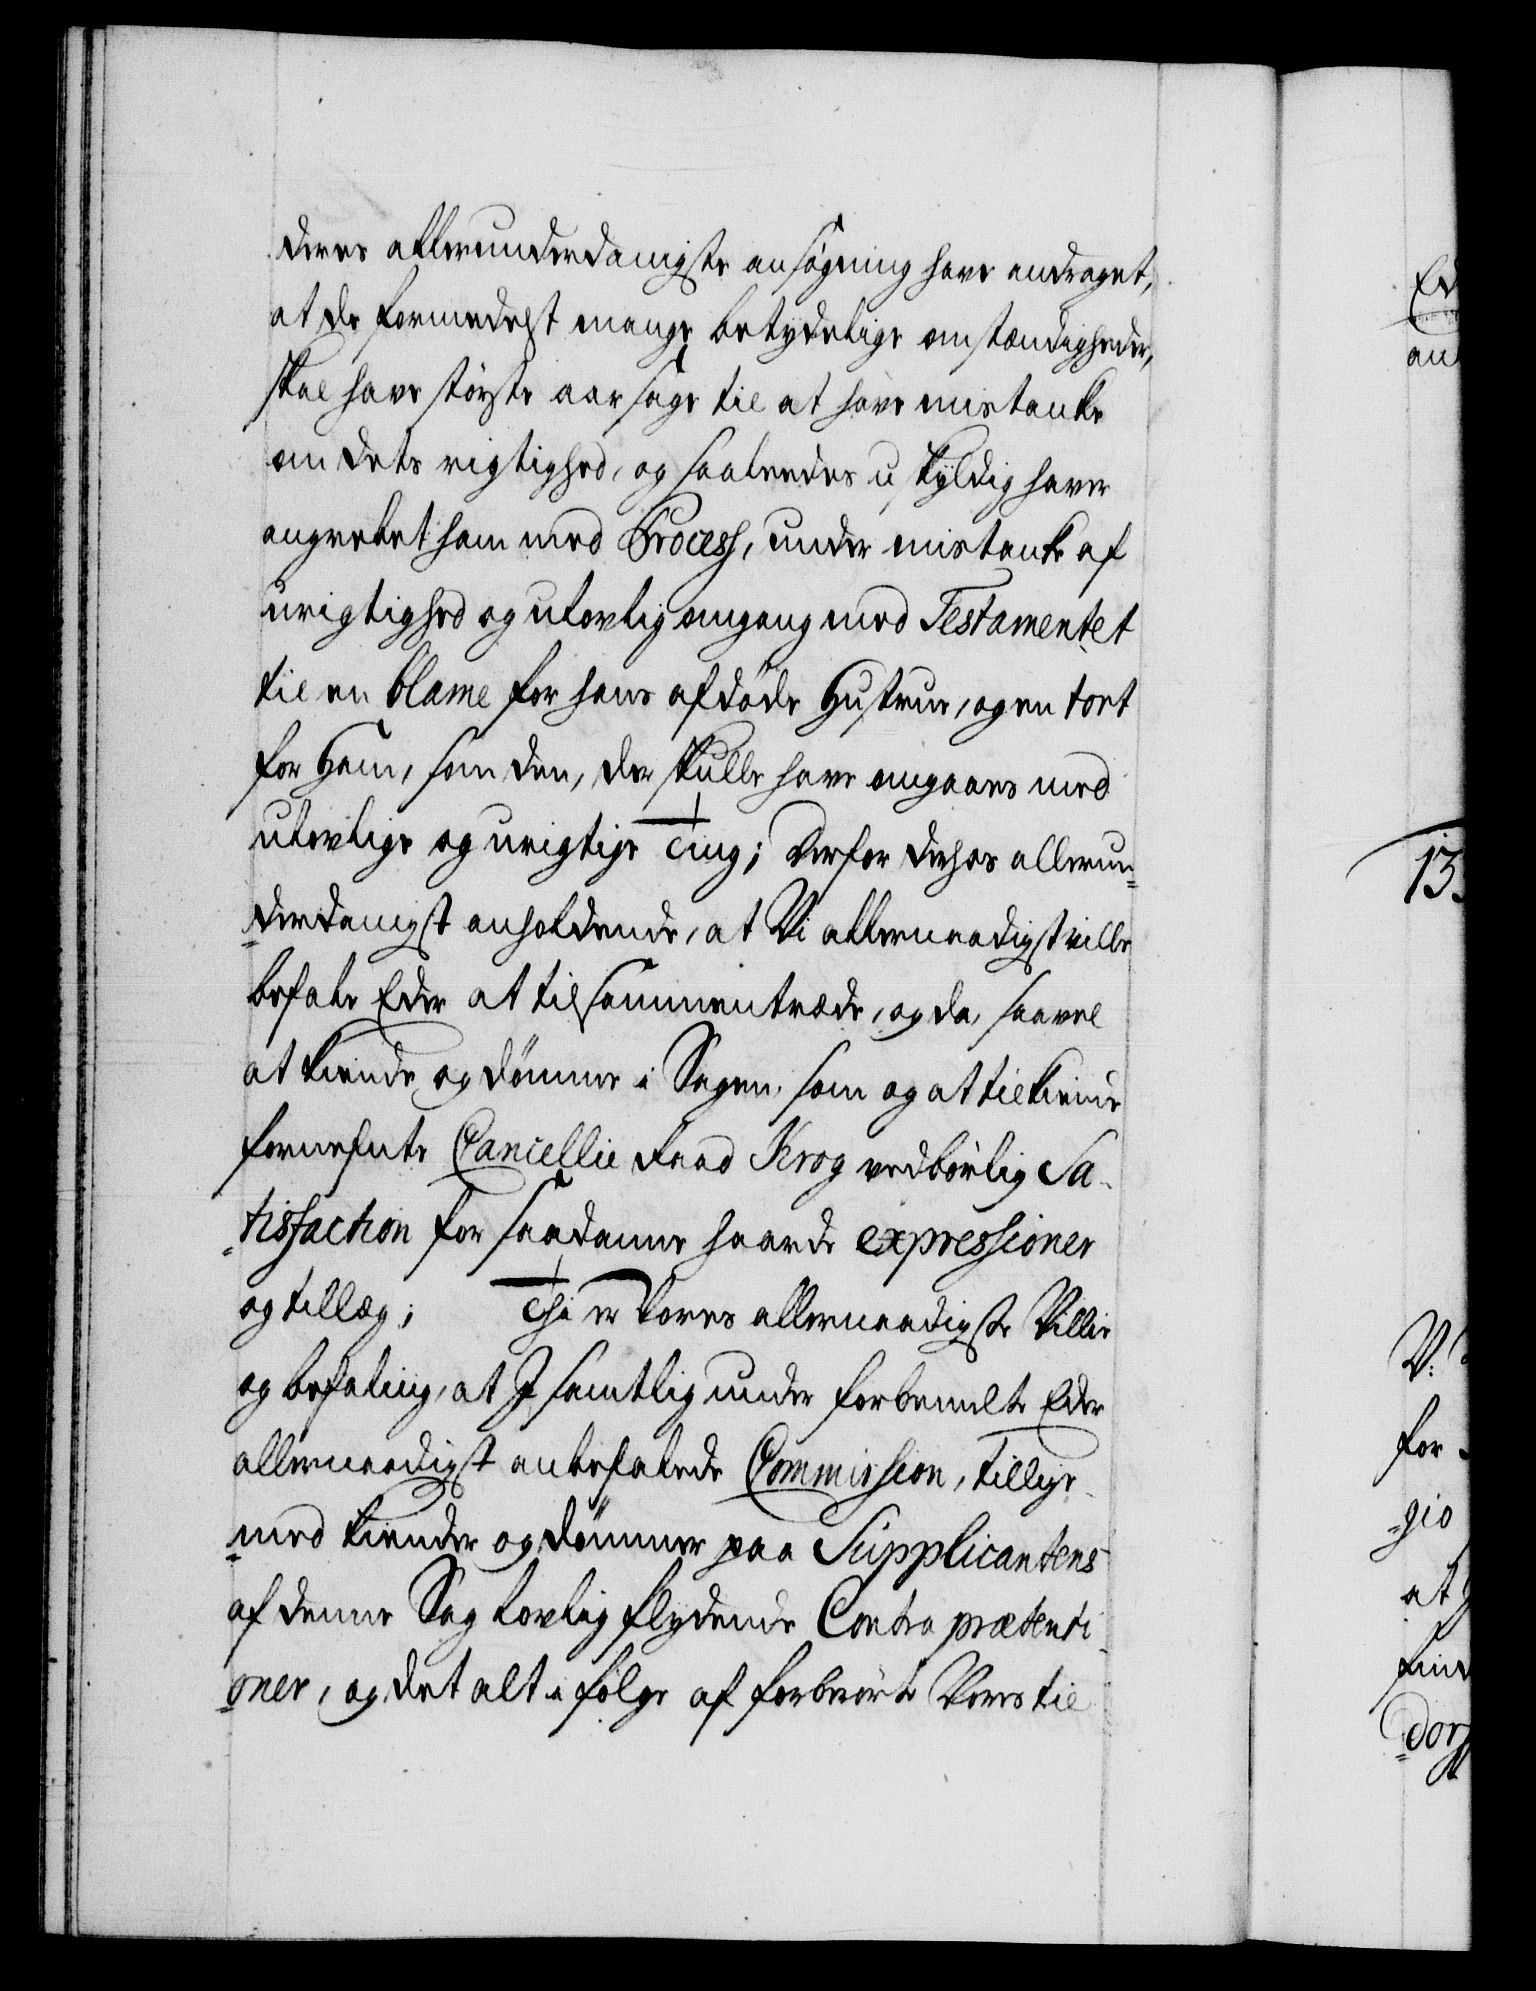 deres allerunderdanigste ansøgning have andraget,
at de formedelst mange betydelige omstændigheder,
skal have største aarsage til at have mistanke
om dets rigtighed, og saaledes uskyldig haver
angrebet ham med Process, under mistanke af
urigtighed og ulovlig omgang med Testamentet
til en blame for hans afdøde Hustrue, og en tort
for Ham, som den, der skulle have omgaaes med
ulovlige og urigtige Ting; Derfor derhos allerun-
derdanigst anholdende, at Vi allernaadigst ville
befale Eder at tilsammentræde, og da, saavel
at kiende og dømme i Sagen, som og at tilkiende
fornefnte Cancellie Raad Krog vedbørlig Sa-
tisfaction for saadanne haarde expressioner
og tillæg; Thi er Vores allernaadigste Villie
og befaling, at I samtlig under forbemelte Eder
allernaadigst anbefalede Commission, tillige-
med kiender og dømmer paa Supplicantens
af denne Sag lovlig flydende Contra prætenti-
oner, og det alt i følge af forberørte Vores til
Ed
an
13.
V:
for
gio
at
fin
dorf